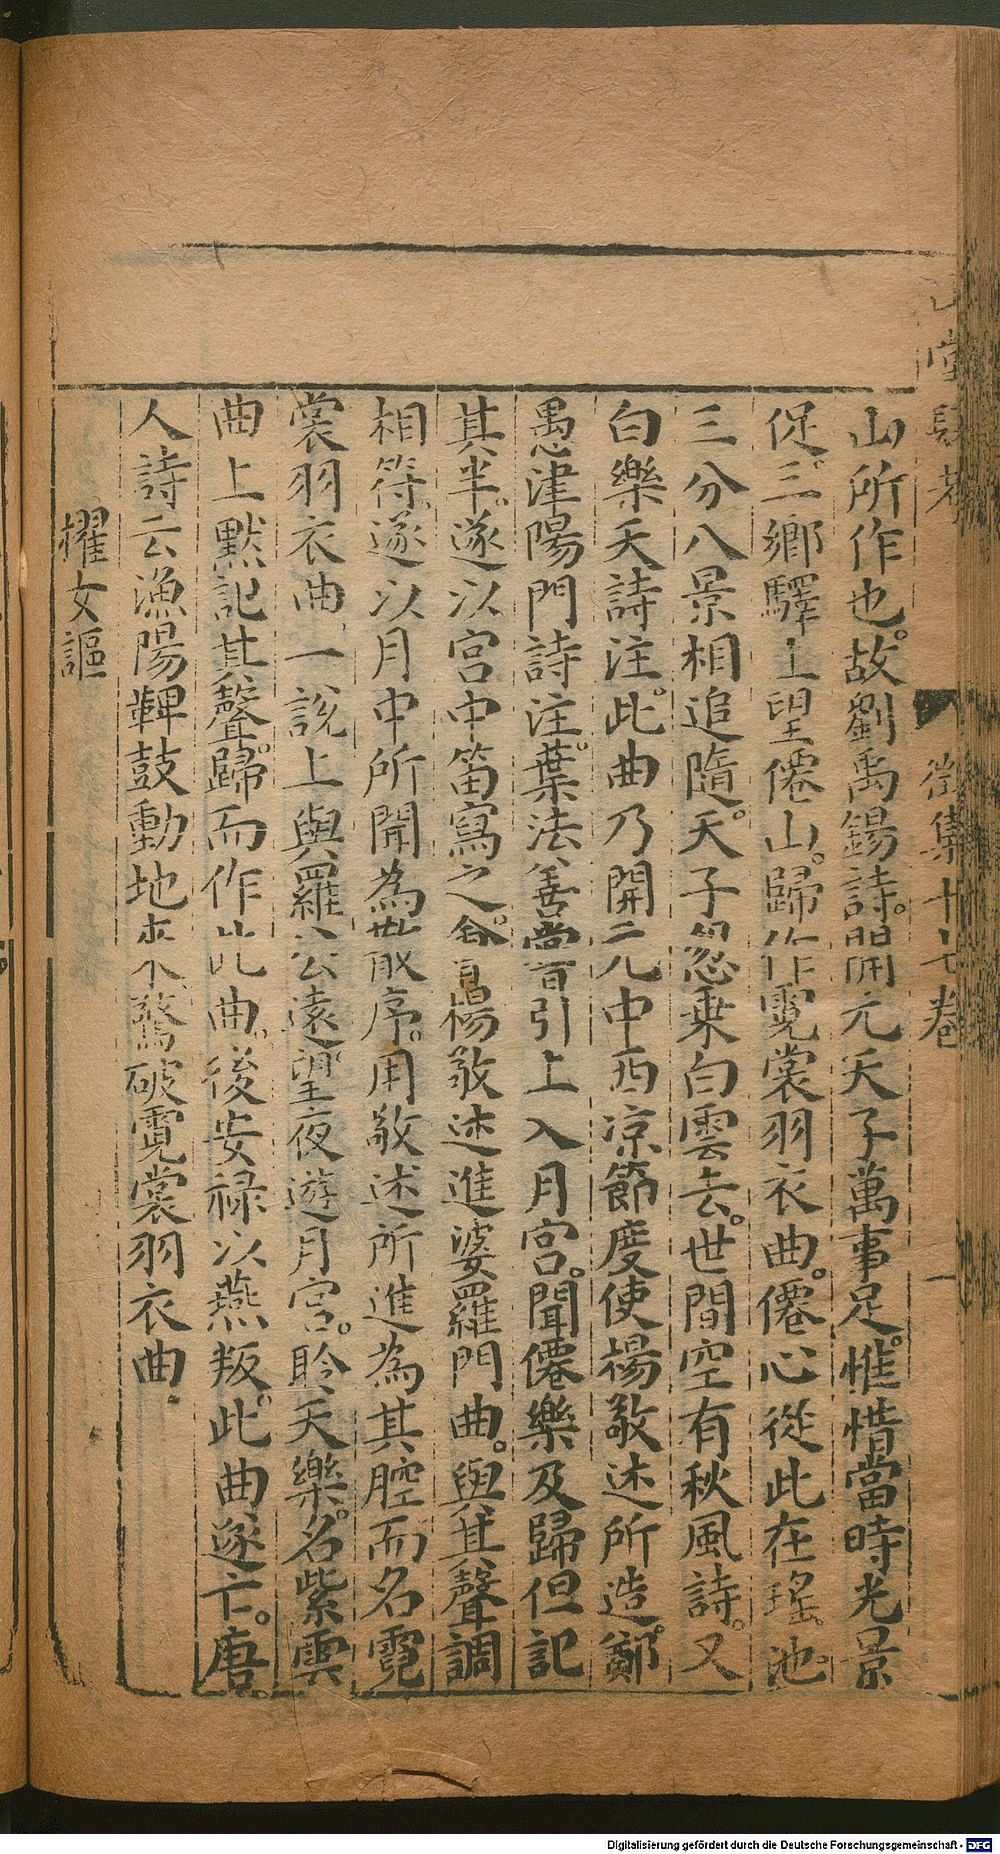 山堂肆考 徵集十七卷 一
山所作也。故劉禹錫詩。開元天子萬事足。惟惜當時光景
促。三鄉驛上望僊山。歸作霓裳羽衣曲。僊心從此在瑤池。
三分八景相追隨。天子忽乗白雲去。世間空有秋風詩。又
白樂天詩注。此曲乃開元中西凉節度使楊敬述所造。鄭
愚津陽門詩注。葉法善嘗引上入月宮。聞僊樂及歸但記
其半。遂以宮中笛寫之。會楊敬述進婆羅門曲。與其聲調
相符。遂以月中所聞為散序。用敬述所進為其腔而名霓
裳羽衣曲。一說上與羅公遠望夜遊月宮。聆天樂。名紫雲
曲上默記其聲。歸而作此曲。後安禄以燕叛。此曲遂亡。唐
人詩云漁陽鞞鼓動地來驚破霓裳羽衣曲.
櫂女謳
Digitalisierung gefördert durch die Deutsche Forschungsgemeinschaft - DFG